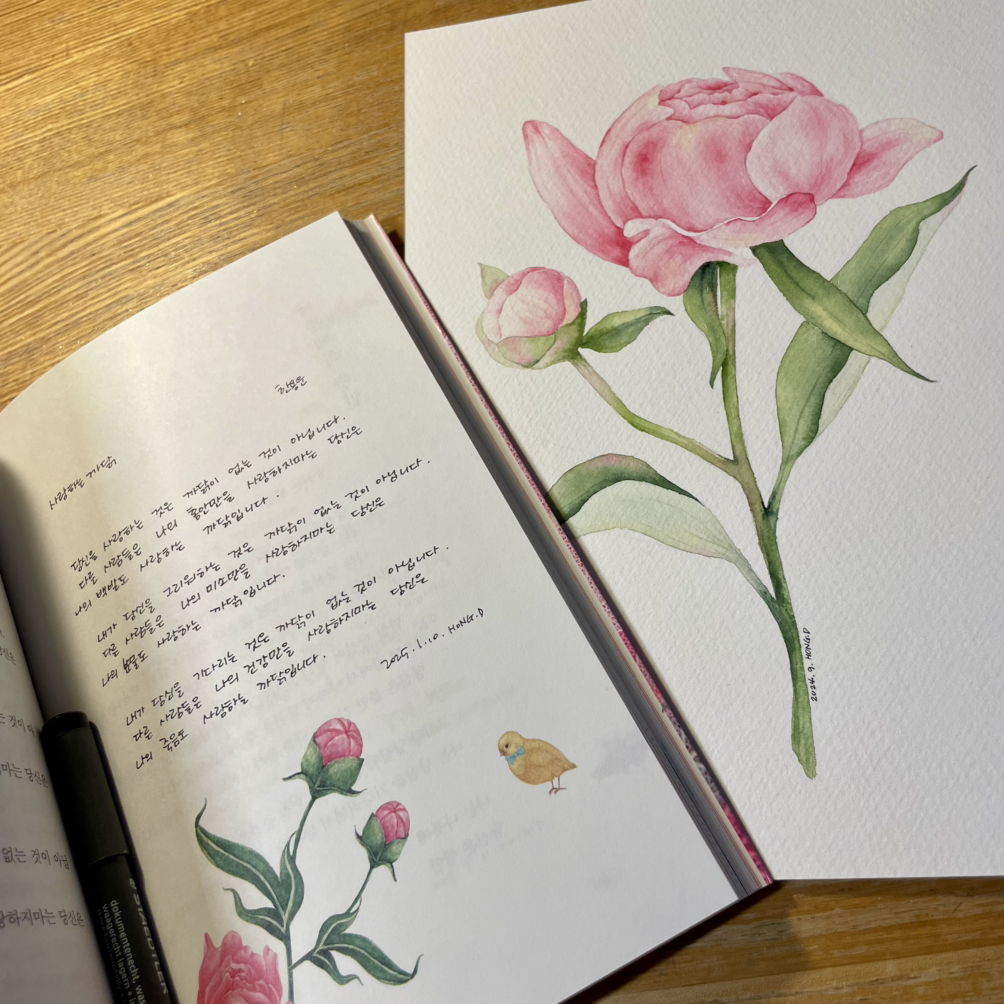 한용운
사랑하는 까닭
당신을 사랑하는 것은 까닭이 없는 것이 아닙니다.
다른 사람들은 나의 홍안만을 사랑하지마는 당신은
나의 백발도 사랑하는 까닭입니다.
내가 당신을 그리워하는 것은 까닭이 없는 것이 아닙니다.
다른 사람들은 나의 미소만을 사랑하지마는 당신은
나의 눈물도 사랑하는 까닭입니다.
내가 당신을 기다리는 것은 까닭이 없는 것이 아닙니다.
다른 사람들은 나의 건강만을 사랑하지마는 당신은
나의 죽음도 사랑하는 까닭입니다.
2025. 1. 10. HONG.D
2024. 9. HONG.D
마는 당신은
없는 것이 아닙
하지마는 당신은
STAEDTLER
dokumentenecht, wa
waagerecht lagern